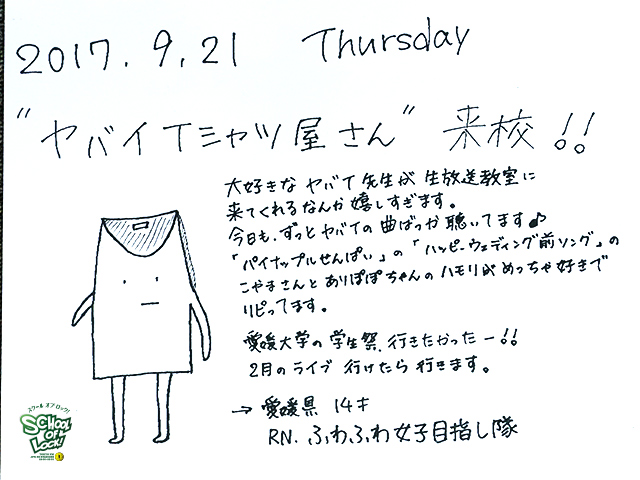 2017.9.21 Thursday
"ヤバイTシャツ屋さん" 来校!!
大好きな ヤバT先生が 生放送教室に
来てくれるなんか嬉しすぎます。
今日も、ずっとヤバTの曲ばっか聴いてます♪
「パイナップルせんぱい」の「ハッピーウェディング前ソング」の
こやまさんと ありぽぽちゃんの ハモリがめっちゃ好きで
リピってます。
愛媛大学の学生祭、行きたかったー!!
2月のライブ 行けたら 行きます。
→ 愛媛県 14才
RN. ふわふわ女子目指し隊
スクール オブ ロック!
SCHOOL
OF
LOCK!